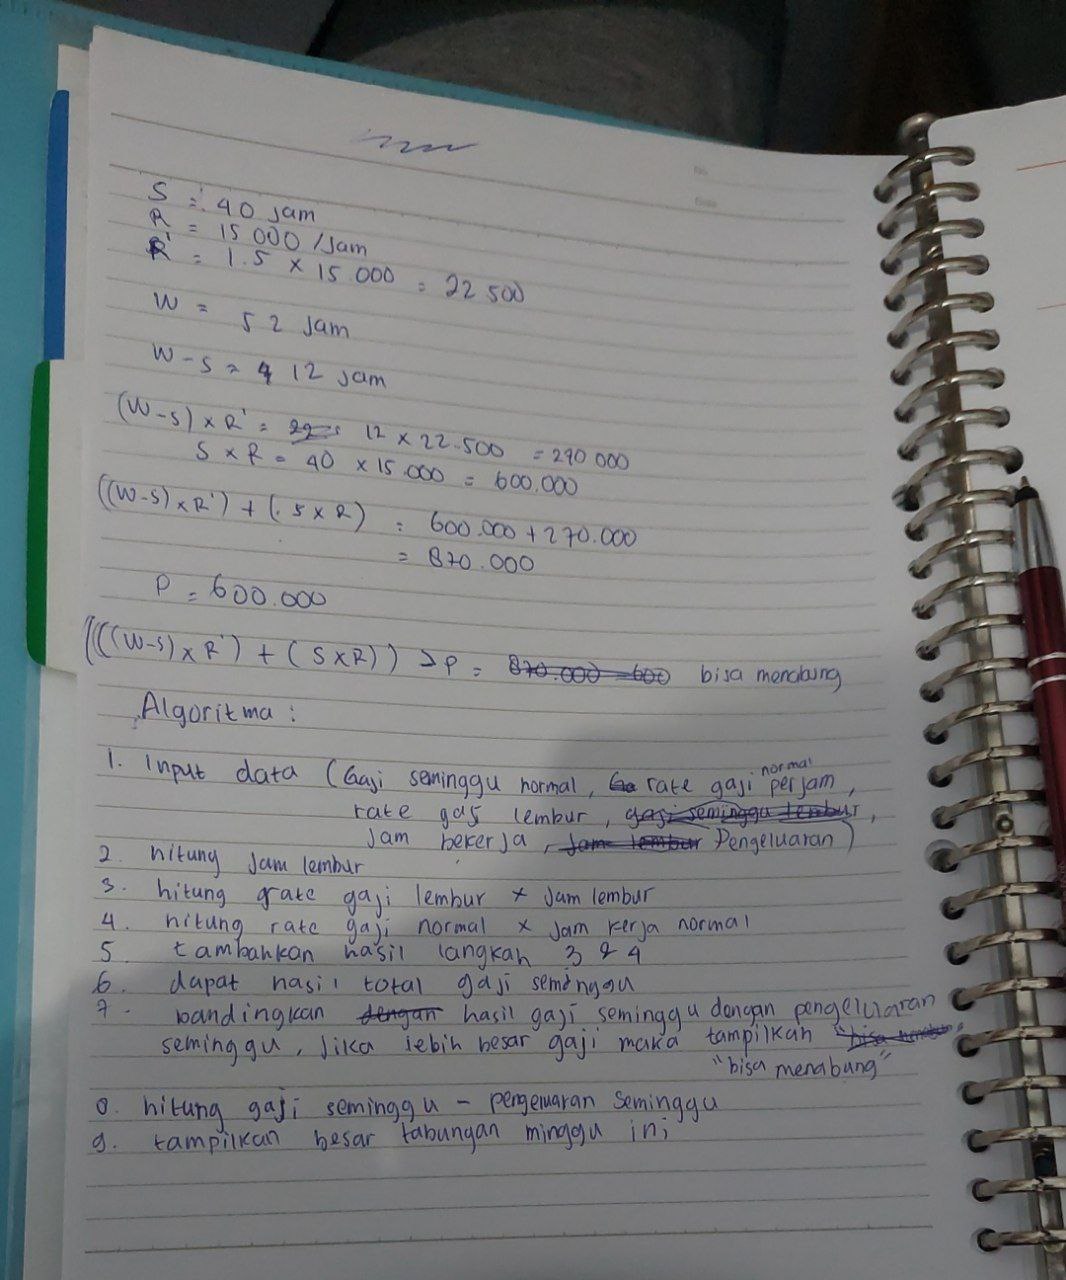 S = 40 jam
R = 15 000 /Jam
R' = 1.5 × 15.000 = 22 500
W = 52 jam
W - S = 12 jam
(W-S) × R' = 12 × 22.500 = 270 000
S × R = 40 × 15.000 = 600.000
((W-S) × R') + (S × R) = 600.000 + 270.000
= 870.000
P = 600.000
((((W-S) × R') + (S×R)) > P = 870.000 - 600 bisa menabung
Algoritma :
1. Input data (Gaji seminggu normal, Ga rate gaji normal perjam,
rate gaji lembur, gaji seminggu lembur,
Jam bekerja, Jam lembur Pengeluaran)
2. hitung Jam lembur
3. hitung rate gaji lembur × Jam lembur
4. hitung rate gaji normal × Jam kerja normal
5 tambahkan hasil langkah 3 & 4
6. dapat hasil total gaji seminggu
7. bandingkan dengan hasil gaji seminggu dengan pengeluaran
seminggu, Jika lebih besar gaji maka tampilkan
"bisa menabung"
8. hitung gaji seminggu - pengeluaran seminggu
9. tampilkan besar tabungan minggu ini